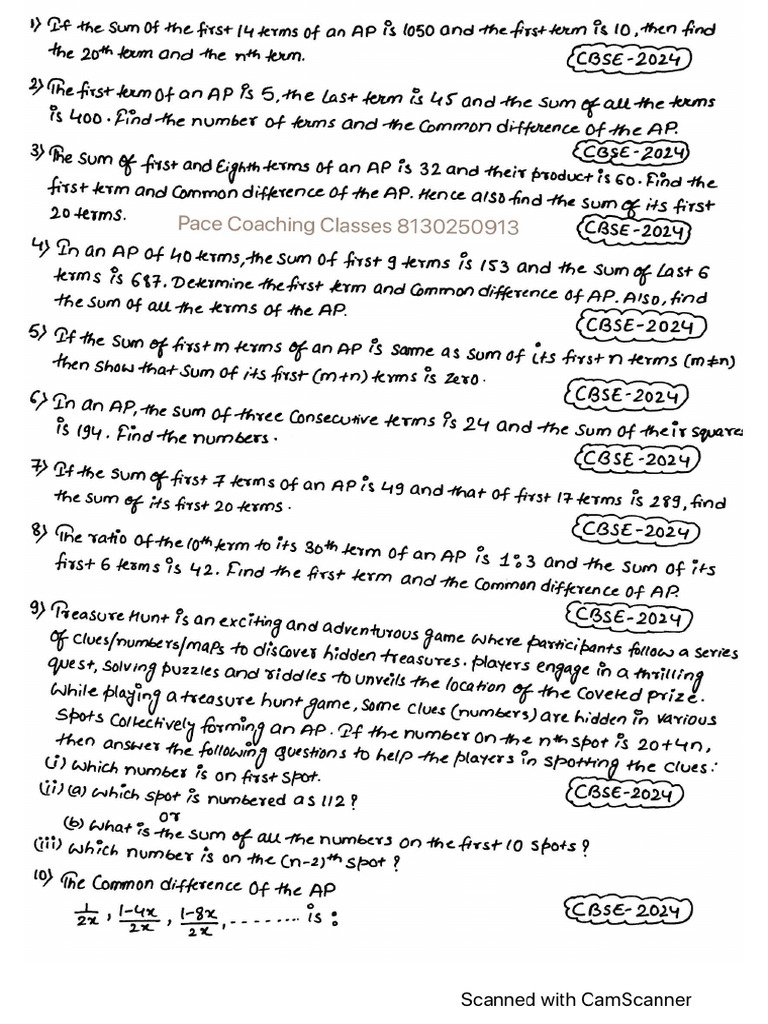 1) If the sum of the first 14 terms of an AP is 1050 and the first term is 10, then find
the 20th term and the nth term. CBSE-2024
2) The first term of an AP is 5, the last term is 45 and the sum of all the terms
is 400. Find the number of terms and the common difference of the AP.
CBSE-2024
3) The sum of first and Eighth terms of an AP is 32 and their product is 60. Find the
first term and common difference of the AP. Hence also find the sum of its first
20 terms. CBSE-2024
Pace Coaching Classes 8130250913
4) In an AP of 40 terms, the sum of first 9 terms is 153 and the sum of last 6
terms is 687. Determine the first term and common difference of AP. Also, find
the sum of all the terms of the AP.
CBSE-2024
5) If the sum of first m terms of an AP is same as sum of its first n terms (m≠n)
then show that sum of its first (m+n) terms is zero.
CBSE-2024
6) In an AP, the sum of three consecutive terms is 24 and the sum of their square
is 194. Find the numbers.
CBSE-2024
7) If the sum of first 7 terms of an AP is 49 and that of first 17 terms is 289, find
the sum of its first 20 terms.
CBSE-2024
8) The ratio of the 10th term to its 30th term of an AP is 1:3 and the sum of its
first 6 terms is 42. Find the first term and the common difference of AP.
CBSE-2024
9) Treasure Hunt is an exciting and adventurous game where participants follow a series
of clues/numbers/maps to discover hidden treasures. players engage in a thrilling
quest, solving puzzles and riddles to unveils the location of the coveted prize.
while playing a treasure hunt game, some clues (numbers) are hidden in various
spots collectively forming an AP. If the number on the nth spot is 20+4n,
then answer the following questions to help the players in spotting the clues:
(i) which number is on first spot. CBSE-2024
(ii) (a) which spot is numbered as 112?
or
(b) what is the sum of all the numbers on the first 10 spots?
(iii) which number is on the (n-2)th spot?
10) The common difference of the AP
1/2x, 1-4x/2x, 1-8x/2x, -------- is: CBSE-2024
Scanned with CamScanner